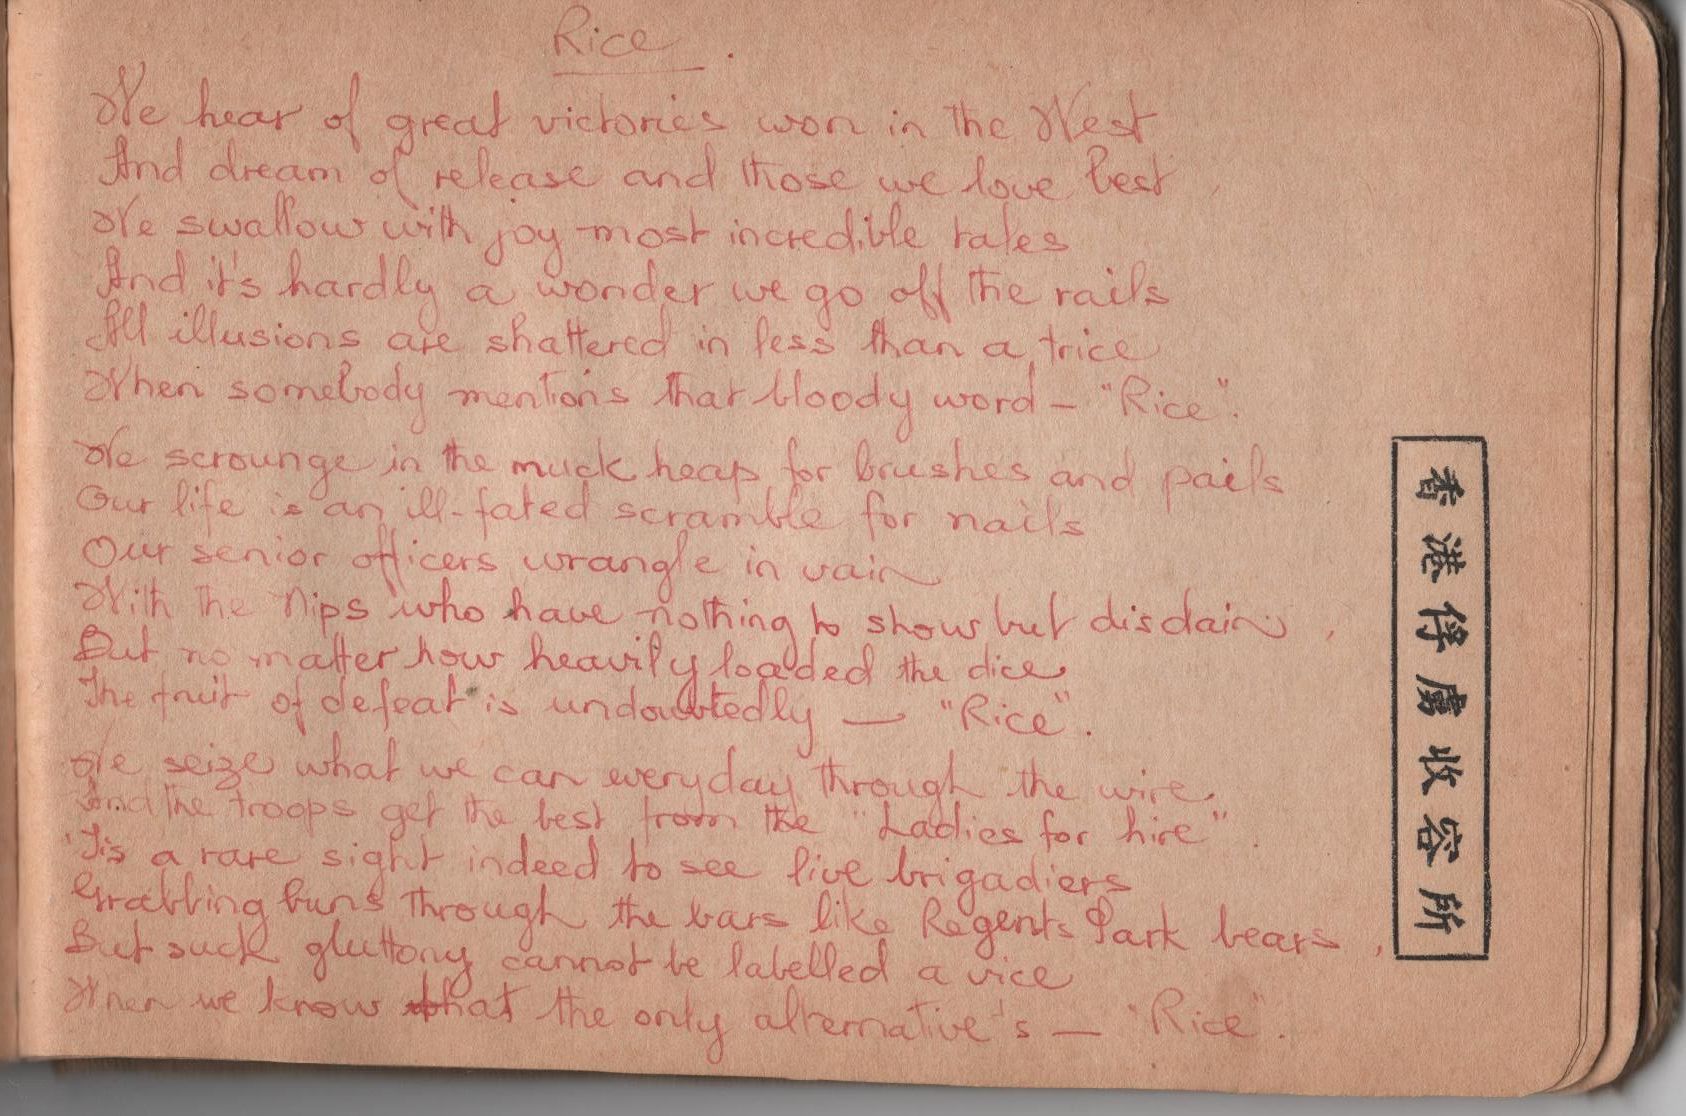 Rice.
We hear of great victories won in the West
And dream of release and those we love best,
We swallow with joy most incredible tales
And it's hardly a wonder we go off the rails
All illusions are shattered in less than a trice
When somebody mentions that bloody word – "Rice".
We scrounge in the muck heap for brushes and pails
Our life is an ill-fated scramble for nails
Our senior officers wrangle in vain
With the Nips who have nothing to show but disdain,
But no matter how heavily loaded the dice
The fruit of defeat is undoubtedly — "Rice".
We seize what we can everyday through the wire,
And the troops get the best from the "Ladies for hire".
'Tis a rare sight indeed to see five brigadiers
Grabbing buns through the bars like Regents Park bears,
But such gluttony cannot be labelled a vice
When we know that the only alternative's — "Rice".
香港俘虜收容所